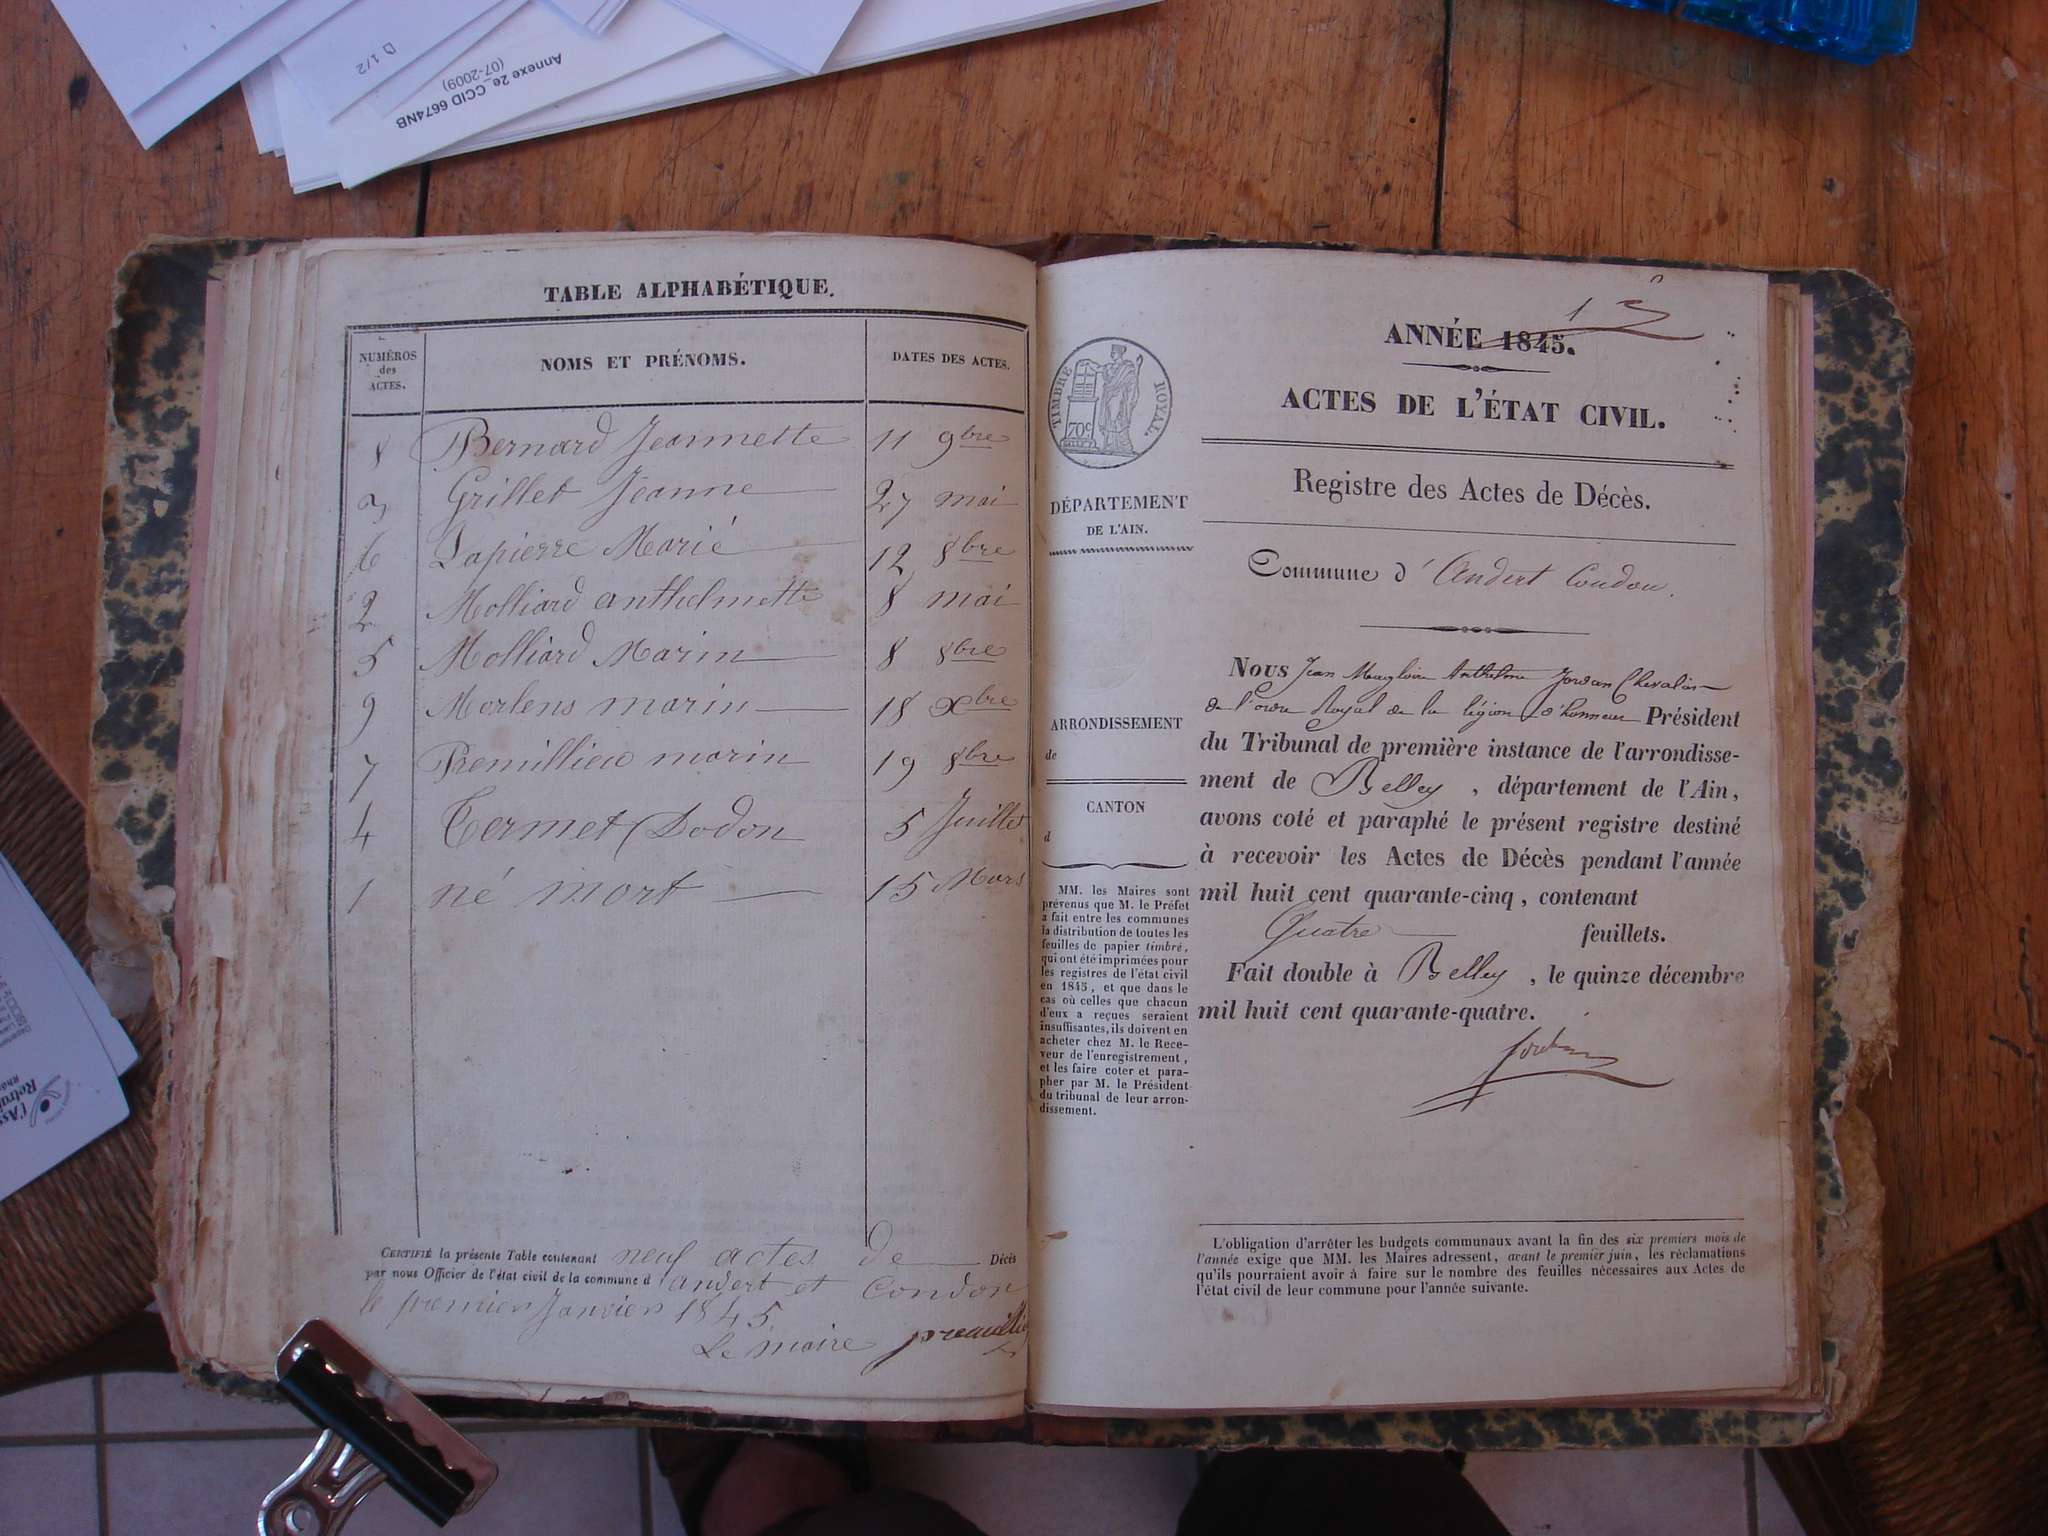 D 1/2
Annexe 2e CCID 6674NB
(07-2009)
TABLE ALPHABÉTIQUE.
NUMÉROS des ACTES. NOMS ET PRÉNOMS. DATES DES ACTES.
8 Bernard Jeannette 11 9bre
3 Grillet Jeanne 27 mai
6 Lapierre Marie 12 8bre
2 Molliard anthelmette 8 mai
5 Molliard Marin 8 8bre
9 Morlens marin 18 Xbre
7 Premillieu marin 19 8bre
4 Termet Dodon 5 Juillet
1 né mort 15 Mars
CERTIFIÉ la présente Table contenant neuf actes de Décès
par nous Officier de l'état civil de la commune d andert et Condon
le premier Janvier 1845
Le maire premillieu
1
ANNÉE 1845.
ACTES DE L'ÉTAT CIVIL.
Registre des Actes de Décès.
Commune d'Andert Condon.
TIMBRE ROYAL.
70c
DÉPARTEMENT
DE L'AIN.
ARRONDISSEMENT
de
CANTON
d
MM. les Maires sont
prévenus que M. le Préfet
a fait entre les communes
la distribution de toutes les
feuilles de papier timbré,
qui ont été imprimées pour
les registres de l'état civil
en 1845, et que dans le
cas où celles que chacun
d'eux a reçues seraient
insuffisantes, ils doivent en
acheter chez M. le Rece-
veur de l'enregistrement,
et les faire coter et para-
pher par M. le Président
du tribunal de leur arron-
dissement.
Nous Jean Magloire Anthelme Jordan Chevalier
de l'ordre Royal de la légion d'honneur Président
du Tribunal de première instance de l'arrondisse-
ment de Belley, département de l'Ain,
avons coté et paraphé le présent registre destiné
à recevoir les Actes de Décès pendant l'année
mil huit cent quarante-cinq, contenant
Quatre feuillets.
Fait double à Belley, le quinze décembre
mil huit cent quarante-quatre.
Jordan
L'obligation d'arrêter les budgets communaux avant la fin des six premiers mois de
l'année exige que MM. les Maires adressent, avant le premier juin, les réclamations
qu'ils pourraient avoir à faire sur le nombre des feuilles nécessaires aux Actes de
l'état civil de leur commune pour l'année suivante.